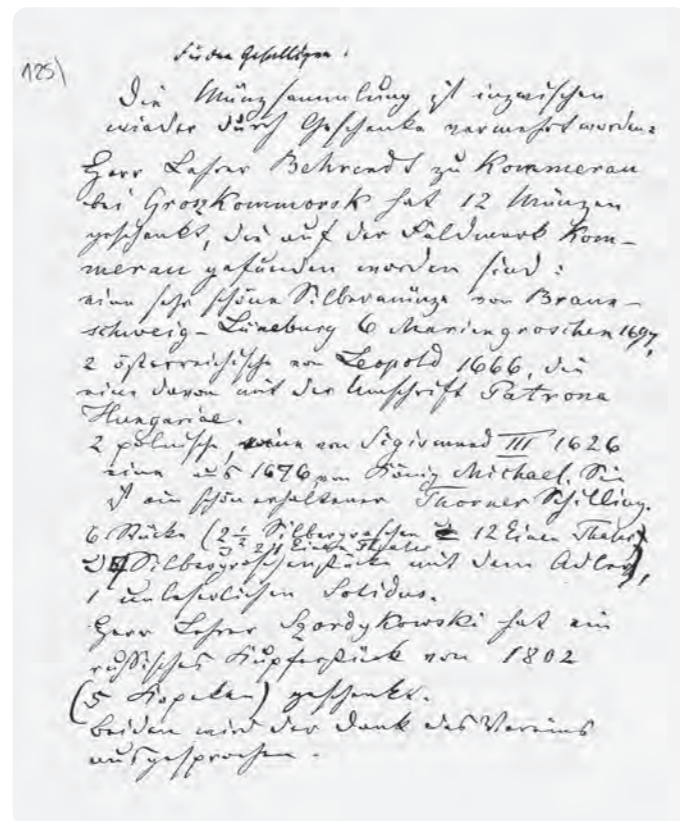 125)
Für den Geselligen.
Die Münzsammlung ist inzwischen
wieder durch Geschenke vermehrt worden:
Herr Lehrer Behrendt zu Kommerau
bei Groszkommorsk hat 12 Münzen
geschenkt, die auf der Feldmark Kom-
merau gefunden worden sind:
eine sehr schöne Silbermünze von Braun-
schweig-Lüneburg 6 Mariengroschen 1697,
2 österreichische von Leopold 1666, die
eine davon mit der Umschrift Patrona
Hungariae.
2 polnische, eine von Sigismund III 1626
eine aus 1676 von König Michael. Sie
ist ein schön erhaltener Thorner Schilling.
6 Stücke (2½ Silbergroschen 12 Einen Thaler)
Silbergroschenstücke mit dem Adler),
1 unleserlichen Solidus.
Herr Lehrer Szordykowski hat ein
russisches Kupferstück von 1802
(5 Kopeken) geschenkt.
beiden wird der Dank des Vereins
ausgesprochen.